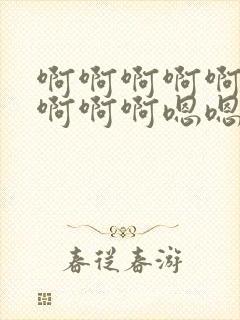 啊啊啊啊啊
啊啊啊嗯嗯
春従春游